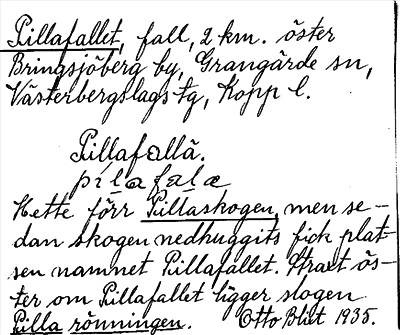 Pillafallet, fall, 2 km. öster
Bringsjöberg by, Grangärde sn,
Västerbergslags tg, Kopp l.
Pillafallä.
pilafalæ
Hette förr Pillaskogen, men se-
dan skogen nedhuggits fick plat-
sen namnet Pillafallet. Straxt ös-
ter om Pillafallet ligger slogen
Pilla rönningen. Otto Blixt 1935.